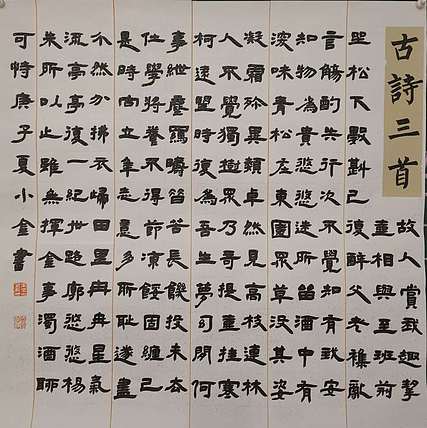 古詩三首
故人賞我趣挈
壺相與至班荊
坐松下數斟已復醉父老雜亂
言觴酌失行次不覺知有我安
知物為貴悠悠迷所留酒中有
深味青松在東園眾草沒其姿
凝霜殄異類卓然見高枝連林
人不覺獨樹眾乃奇提壺挂寒
柯遠望時復為吾生夢幻間何
事紲塵羈疇昔苦長饑投耒去
仕學將養不得節凍餒固纏己
是時向立年志意多所恥遂盡
介然分拂衣歸田里冉冉星氣
流亭亭復一紀世路廓悠悠楊
朱所以止雖無揮金事濁酒聊
可恃庚子夏小金書